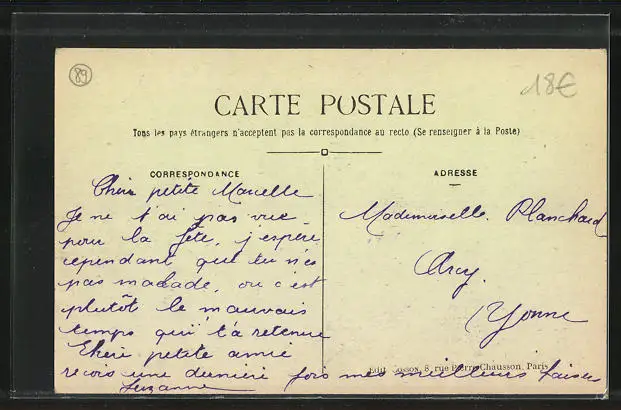 89
18€
CARTE POSTALE
Tous les pays étrangers n'acceptent pas la correspondance au recto (Se renseigner à la Poste)
CORRESPONDANCE
Chère petite Marcelle
Je ne t'ai pas vue
pour la fête, j'espère
cependant que tu n'es
pas malade, ou c'est
plutôt le mauvais
temps qui t'a retenue
Chère petite amie
recois une dernière fois mes meilleurs baisers
Suzanne
ADRESSE
Mademoiselle Planchard
Arcy
Yonne
Edit. 8, rue Pierre-Chausson, Paris